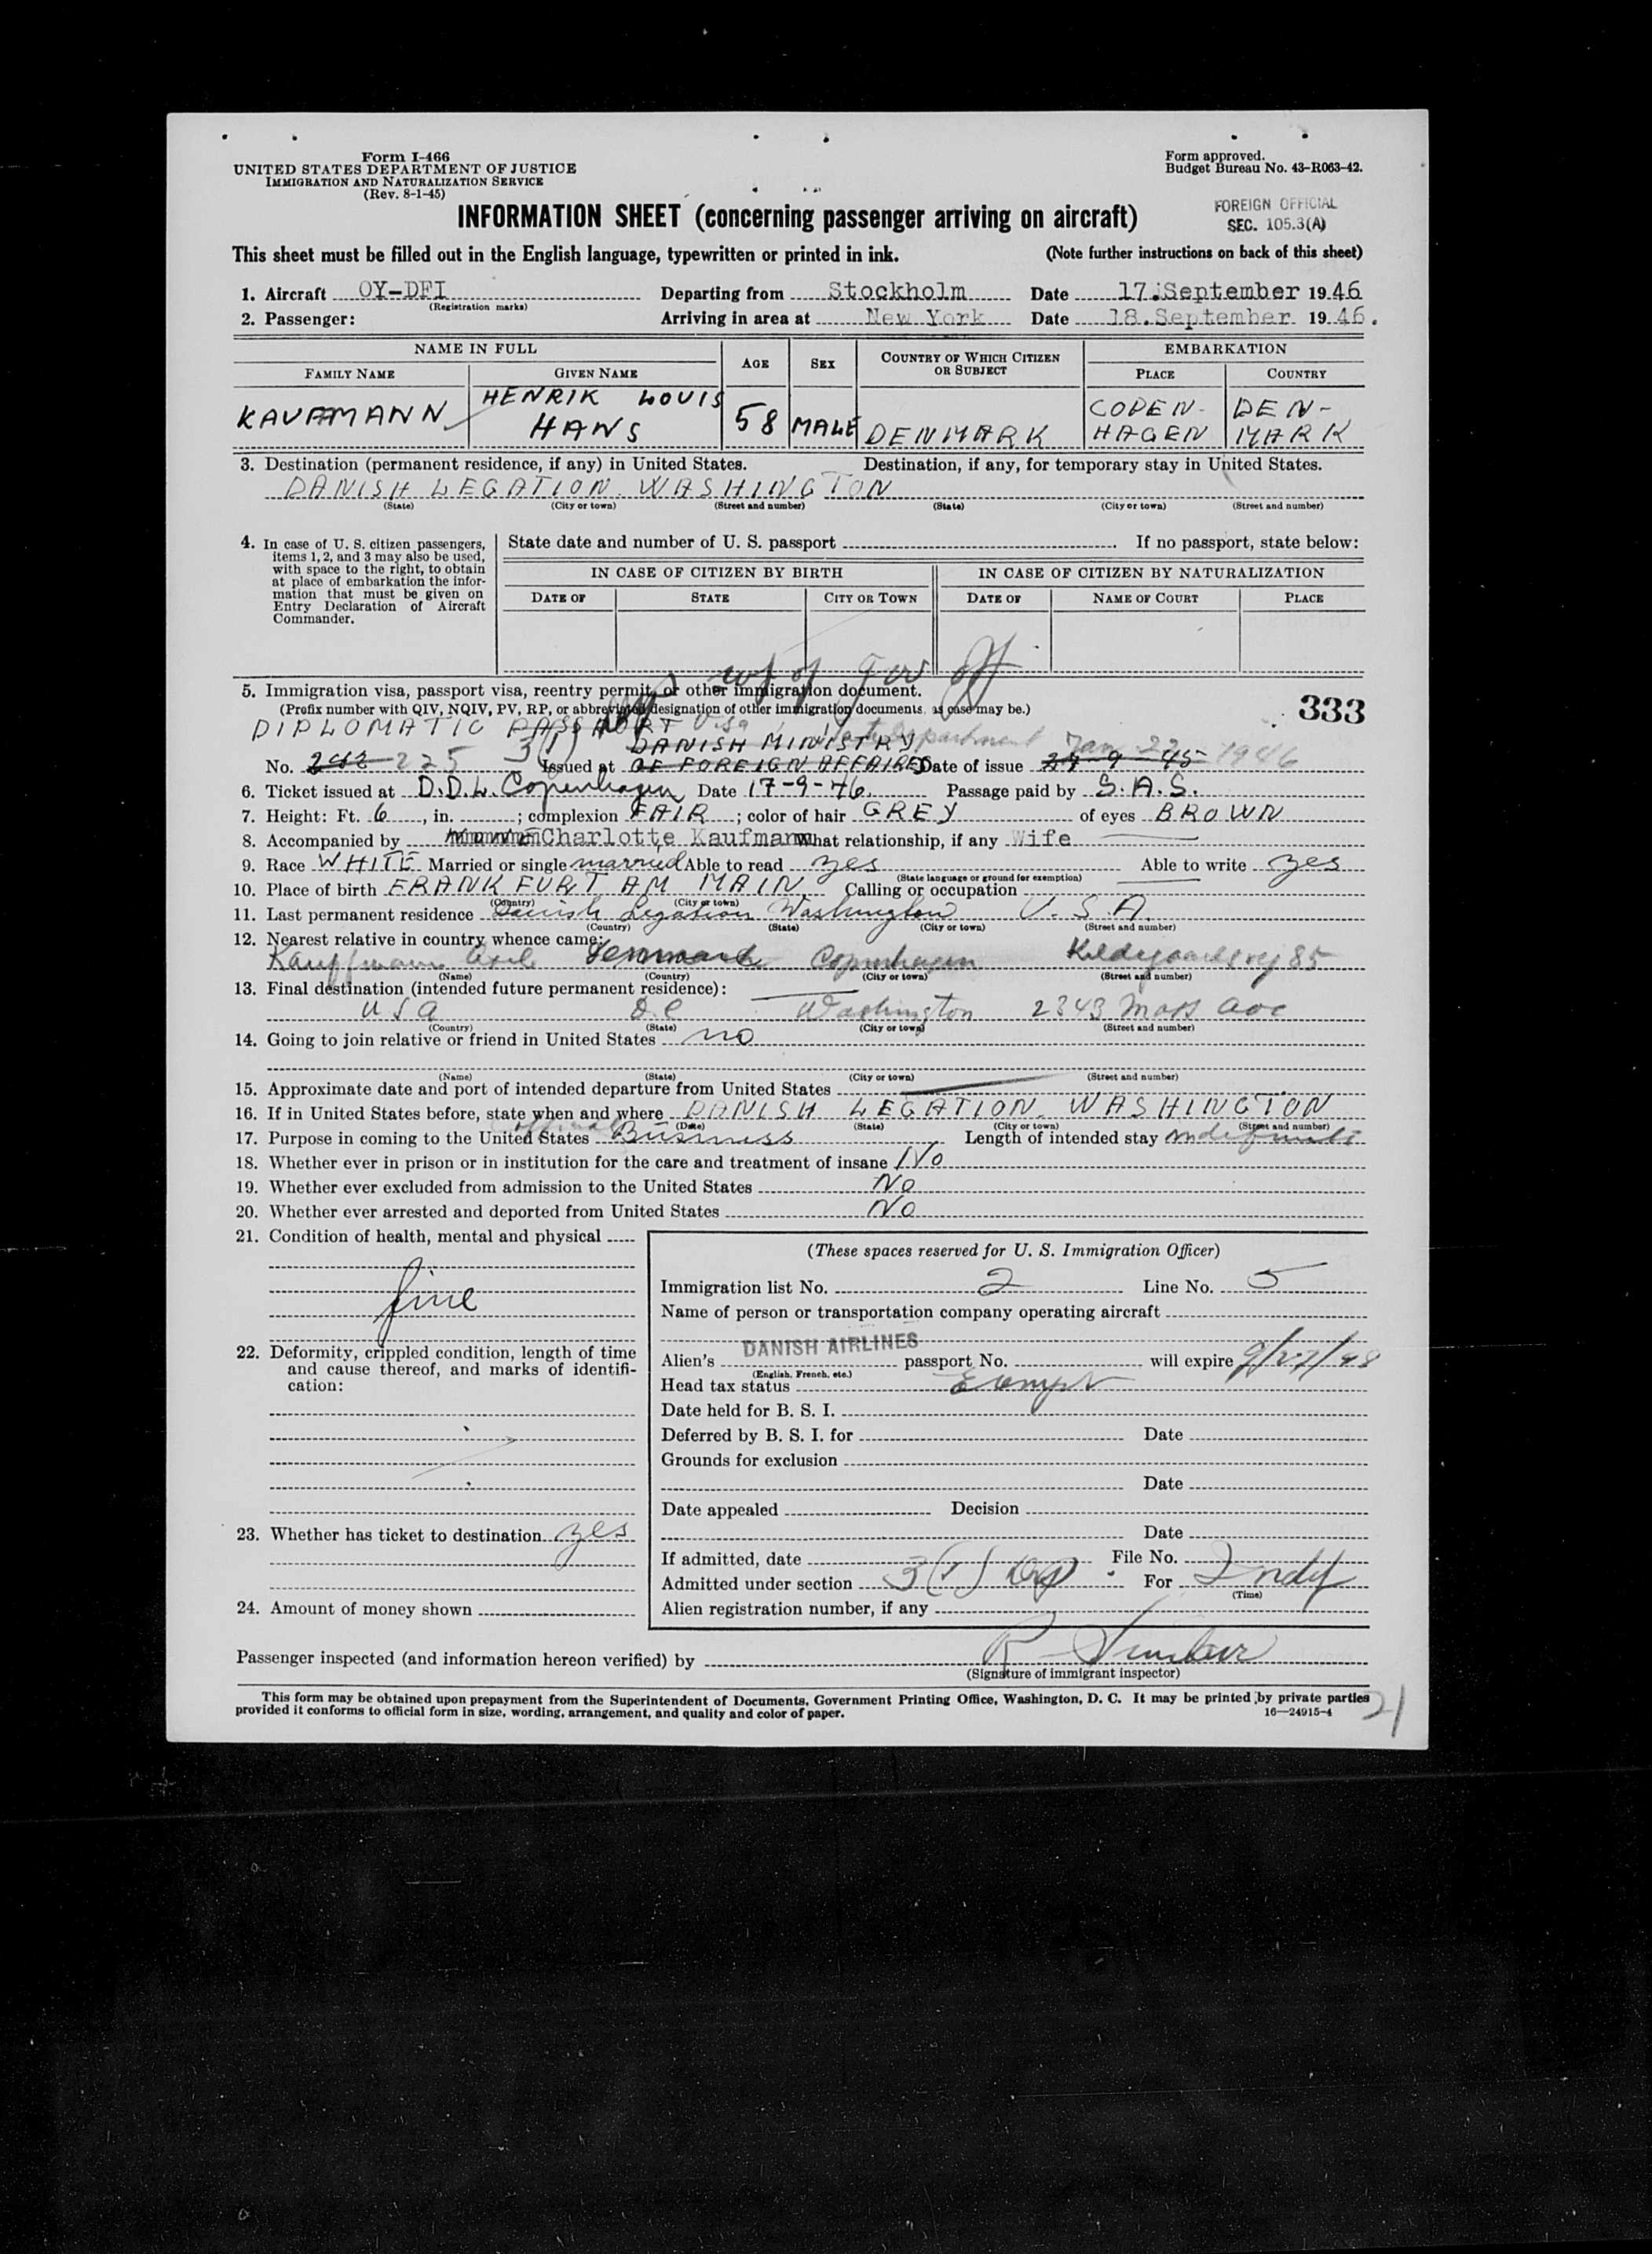 Form I-466
UNITED STATES DEPARTMENT OF JUSTICE
IMMIGRATION AND NATURALIZATION SERVICE
(Rev. 8-1-45)
Form approved.
Budget Bureau No. 43-R063-42.
INFORMATION SHEET (concerning passenger arriving on aircraft)
FOREIGN OFFICIAL
SEC. 105.3(A)
This sheet must be filled out in the English language, typewritten or printed in ink. (Note further instructions on back of this sheet)
1. Aircraft OY-DFI Departing from Stockholm Date 17.September 1946
(Registration marks)
2. Passenger: Arriving in area at New York Date 18.September 1946.
NAME IN FULL AGE SEX COUNTRY OF WHICH CITIZEN OR SUBJECT EMBARKATION
FAMILY NAME GIVEN NAME PLACE COUNTRY
KAUFMANN HENRIK LOUIS HANS 58 MALE DENMARK COPENHAGEN DENMARK
3. Destination (permanent residence, if any) in United States. Destination, if any, for temporary stay in United States.
DANISH LEGATION. WASHINGTON
(State) (City or town) (Street and number) (State) (City or town) (Street and number)
4. In case of U. S. citizen passengers, items 1, 2, and 3 may also be used, with space to the right, to obtain at place of embarkation the information that must be given on Entry Declaration of Aircraft Commander.
State date and number of U. S. passport If no passport, state below:
IN CASE OF CITIZEN BY BIRTH IN CASE OF CITIZEN BY NATURALIZATION
DATE OF STATE CITY OR TOWN DATE OF NAME OF COURT PLACE
5. Immigration visa, passport visa, reentry permit, or other immigration document.
(Prefix number with QIV, NQIV, PV, RP, or abbreviated designation of other immigration documents, as case may be.)
333
DIPLOMATIC PASSPORT Visa
3(1) DANISH MINISTRY Department Jan 22 1946
No. 225 Issued at OF FOREIGN AFFAIRES Date of issue 27-9-45
6. Ticket issued at D.D.L. Copenhagen Date 17-9-46. Passage paid by S.A.S.
7. Height: Ft. 6, in. ; complexion FAIR ; color of hair GREY of eyes BROWN
8. Accompanied by Charlotte Kaufmann What relationship, if any Wife
9. Race WHITE Married or single married Able to read yes Able to write yes
(State language or ground for exemption)
10. Place of birth FRANKFURT AM MAIN Calling or occupation
(Country) (City or town)
11. Last permanent residence Danish Legation Washington U.S.A.
(Country) (State) (City or town) (Street and number)
12. Nearest relative in country whence came:
Kauffmann Axel Denmark Copenhagen Kildegaardsvej 85
(Name) (Country) (City or town) (Street and number)
13. Final destination (intended future permanent residence):
USA D.C Washington 2343 Mass Ave
(Country) (State) (City or town) (Street and number)
14. Going to join relative or friend in United States no
(Name) (State) (City or town) (Street and number)
15. Approximate date and port of intended departure from United States
16. If in United States before, state when and where DANISH LEGATION. WASHINGTON
(Date) (State) (City or town) (Street and number)
official
17. Purpose in coming to the United States Business Length of intended stay indefinite
18. Whether ever in prison or in institution for the care and treatment of insane No
19. Whether ever excluded from admission to the United States No
20. Whether ever arrested and deported from United States No
21. Condition of health, mental and physical
fine
22. Deformity, crippled condition, length of time and cause thereof, and marks of identification:
23. Whether has ticket to destination yes
24. Amount of money shown
(These spaces reserved for U. S. Immigration Officer)
Immigration list No. 2 Line No. 5
Name of person or transportation company operating aircraft
DANISH AIRLINES
Alien's passport No. will expire 9/27/48
(English, French, etc.)
Head tax status Exempt
Date held for B. S. I.
Deferred by B. S. I. for Date
Grounds for exclusion
Date
Date appealed Decision
Date
If admitted, date File No.
Admitted under section 3(1) For Indf
(Time)
Alien registration number, if any
Passenger inspected (and information hereon verified) by
(Signature of immigrant inspector)
This form may be obtained upon prepayment from the Superintendent of Documents, Government Printing Office, Washington, D. C. It may be printed by private parties
provided it conforms to official form in size, wording, arrangement, and quality and color of paper. 16—24915-4
21